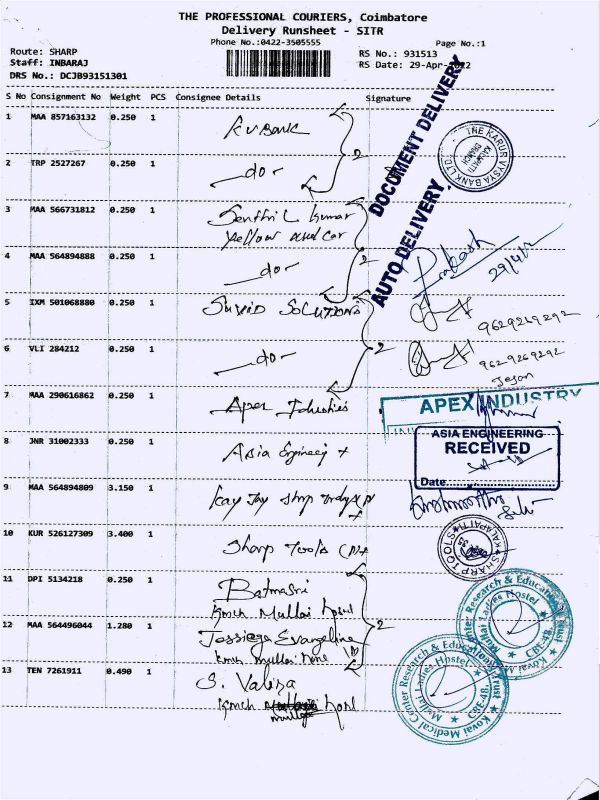 THE PROFESSIONAL COURIERS, Coimbatore
Delivery Runsheet - SITR
Phone No.:0422-3505555
Page No.:1
Route: SHARP
RS No.: 931513
Staff: INBARAJ
RS Date: 29-Apr-2022
DRS No.: DCJB93151301
S No Consignment No Weight PCS Consignee Details Signature
1 MAA 857163132 0.250 1 KVBank
2 TRP 2527267 0.250 1 —do—
2
THE KARUR VYSYA BANK LTD.
KALAPATTI BRANCH
DOCUMENT DELIVERY
AUTO DELIVERY
3 MAA 566731812 0.250 1 Senthil Kumar
Yellow
4 MAA 564894888 0.250 1 —do—
2
Prakash
29/4/2
5 IXM 501068880 0.250 1 SOLUTIONS
9629269292
6 VLI 284212 0.250 1 —do—
2
9629269292
Jeson
7 MAA 290616862 0.250 1 Apex
APEX INDUSTRY
8 JNR 31002333 0.250 1 Asia
ASIA ENGINEERING
RECEIVED
Date
9 MAA 564894809 3.150 1 Kay Jay
10 KUR 526127309 3.400 1 Sharp Tools
SHARP TOOLS
KALAPATTI
11 DPI 5134218 0.250 1
Kmch Mullai
12 MAA 564496044 1.280 1 Evangeline
Kmch Mullai
2
13 TEN 7261911 0.490 1 S.
Kmch
mullai
Kovai Medical Center Research & Educational Trust
Mullai Ladies Hostel
CBE-48.
Kovai Medical Center Research & Educational Trust
Mullai Ladies Hostel
CBE-48.